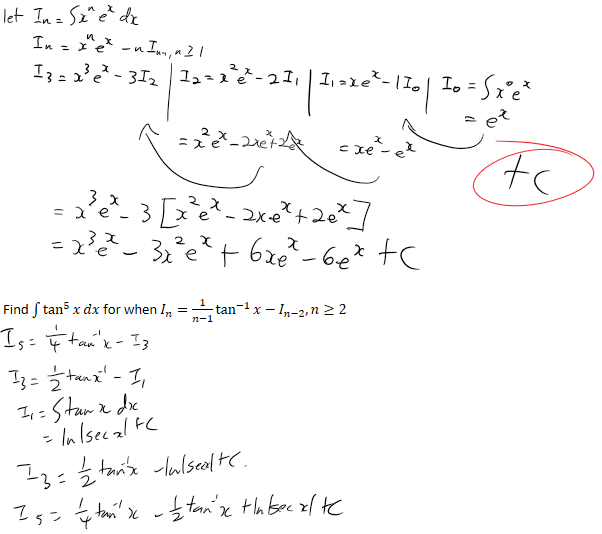 let Iₙ = ∫xⁿeˣ dx
Iₙ = xⁿeˣ - nIₙ₋₁, n ≥ 1
I₃ = x³eˣ - 3I₂ | I₂ = x²eˣ - 2I₁ | I₁ = xeˣ - 1I₀ | I₀ = ∫x⁰eˣ
= x²eˣ - 2xeˣ + 2eˣ = xeˣ - eˣ = eˣ
+c
= x³eˣ - 3[x²eˣ - 2xeˣ + 2eˣ]
= x³eˣ - 3x²eˣ + 6xeˣ - 6eˣ + C
Find ∫ tan⁵ x dx for when Iₙ = 1/(n-1) tan⁻¹ x − Iₙ₋₂, n ≥ 2
I₅ = 1/4 tan⁻¹x - I₃
I₃ = 1/2 tanx⁻¹ - I₁
I₁ = ∫tan x dx
= ln|sec x| + C
I₃ = 1/2 tan⁻¹x - ln|secx| + C.
I₅ = 1/4 tan⁻¹ x - 1/2 tan⁻¹ x + ln|sec x| + C